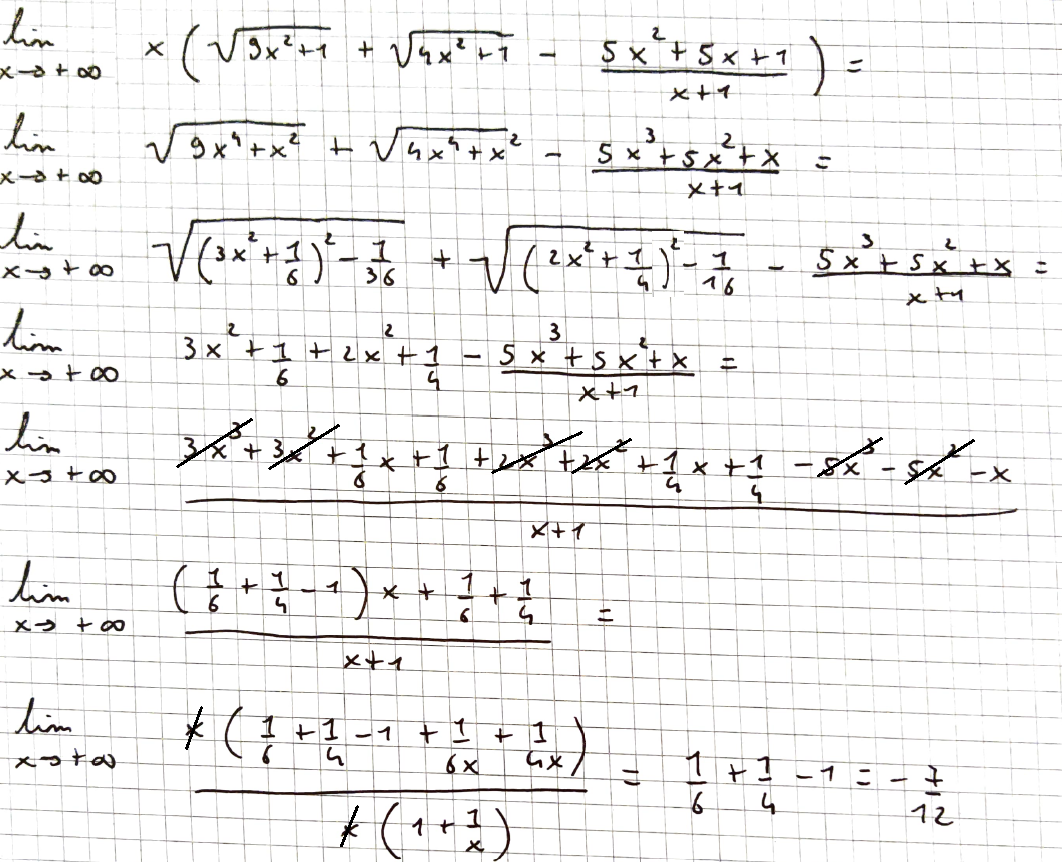 lim x→+∞ x ( √(9x²+1) + √(4x²+1) - (5x²+5x+1)/(x+1) ) =
lim x→+∞ √(9x⁴+x²) + √(4x⁴+x²) - (5x³+5x²+x)/(x+1) =
lim x→+∞ √((3x²+1/6)²-1/36) + √((2x²+1/4)²-1/16) - (5x³+5x²+x)/(x+1) =
lim x→+∞ 3x²+1/6+2x²+1/4-(5x³+5x²+x)/(x+1) =
lim x→+∞ (3x³+3x²+1/6x+1/6+2x³+2x²+1/4x+1/4-5x³-5x²-x)/(x+1)
lim x→+∞ ((1/6+1/4-1)x+1/6+1/4)/(x+1) =
lim x→+∞ x(1/6+1/4-1+1/6x+1/4x)/x(1+1/x) = 1/6+1/4-1=-7/12